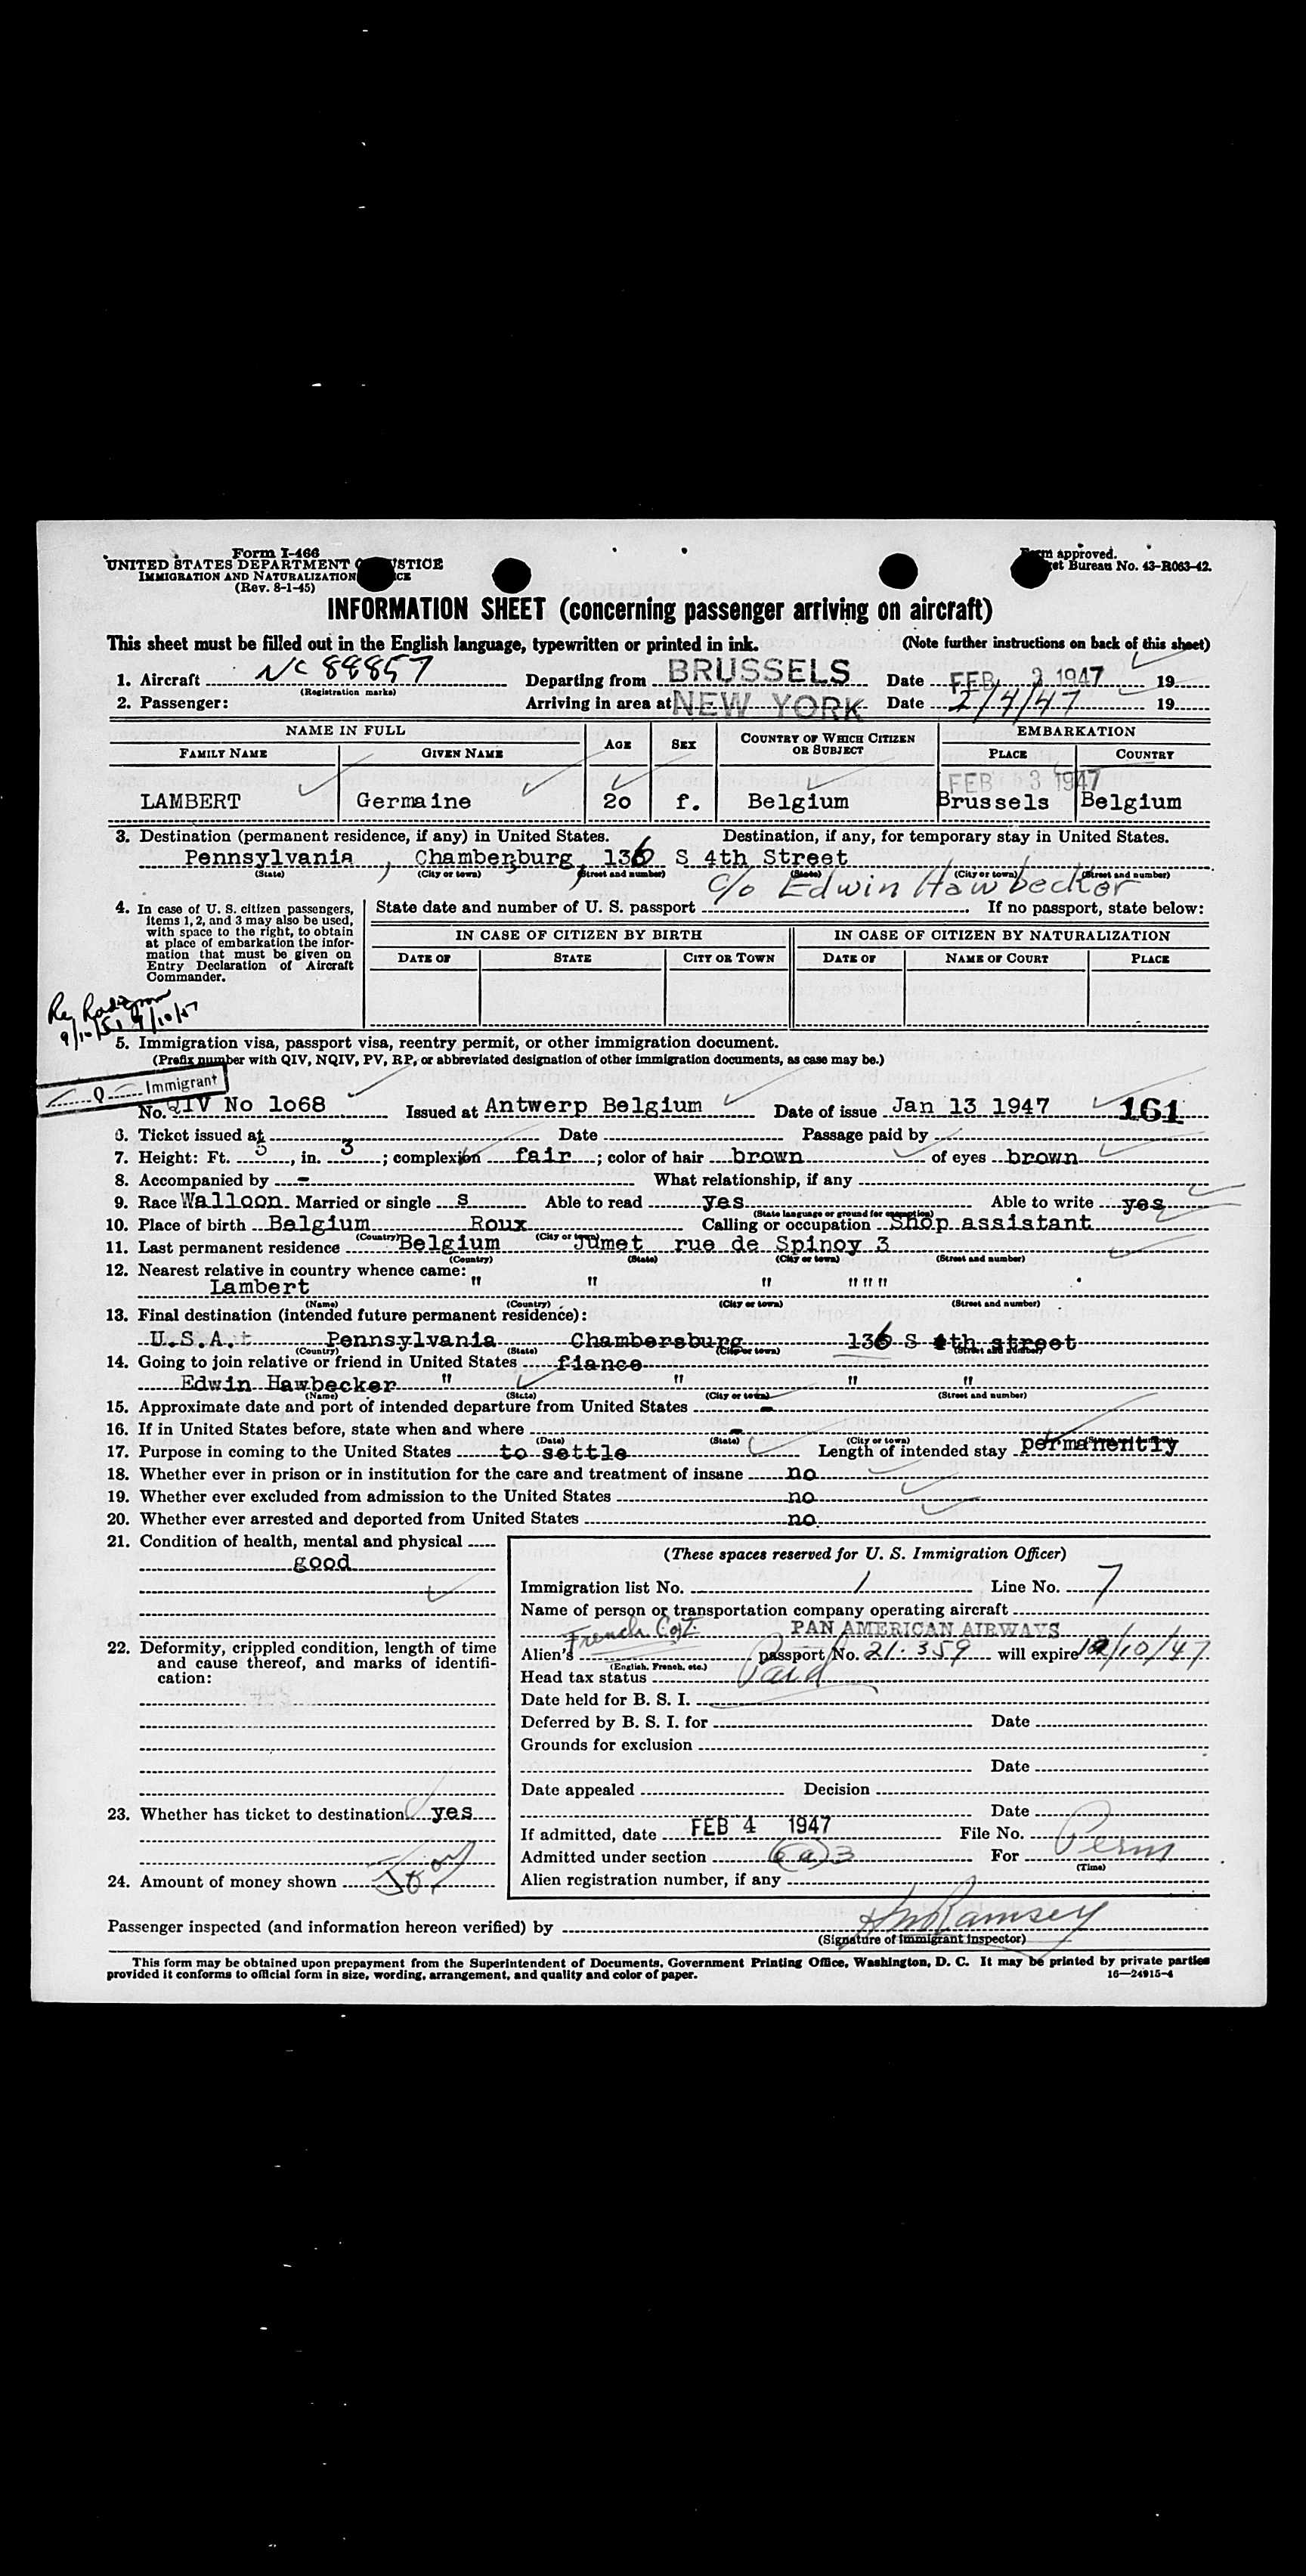 Form I-466
UNITED STATES DEPARTMENT
IMMIGRATION AND NATURALIZATION
(Rev. 8-1-45)
Form approved.
Bureau No. 43-R063-42.
INFORMATION SHEET (concerning passenger arriving on aircraft)
This sheet must be filled out in the English language, typewritten or printed in ink. (Note further instructions on back of this sheet)
1. Aircraft NC 88857 Departing from BRUSSELS Date FEB 3 1947 19
(Registration marks)
2. Passenger: Arriving in area at NEW YORK Date 2/4/47 19
NAME IN FULL AGE SEX COUNTRY OF WHICH CITIZEN OR SUBJECT EMBARKATION
FAMILY NAME GIVEN NAME PLACE COUNTRY
FEB 3 1947
LAMBERT Germaine 2o f. Belgium Brussels Belgium
3. Destination (permanent residence, if any) in United States. Destination, if any, for temporary stay in United States.
Pennsylvania , Chambersburg, 136 S 4th Street
(State) (City or town) (Street and number) (State) (City or town) (Street and number)
c/o Edwin Hawbecker
4. In case of U. S. citizen passengers, items 1, 2, and 3 may also be used, with space to the right, to obtain at place of embarkation the information that must be given on Entry Declaration of Aircraft Commander.
State date and number of U. S. passport If no passport, state below:
IN CASE OF CITIZEN BY BIRTH IN CASE OF CITIZEN BY NATURALIZATION
DATE OF STATE CITY OR TOWN DATE OF NAME OF COURT PLACE
5. Immigration visa, passport visa, reentry permit, or other immigration document.
(Prefix number with QIV, NQIV, PV, RP, or abbreviated designation of other immigration documents, as case may be.)
Q Immigrant
No. QIV No 1o68 Issued at Antwerp Belgium Date of issue Jan 13 1947 161
6. Ticket issued at Date Passage paid by
7. Height: Ft. 5, in. 3; complexion fair; color of hair brown of eyes brown
8. Accompanied by - What relationship, if any
9. Race Walloon Married or single s Able to read yes Able to write yes
(State language or ground for exemption)
10. Place of birth Belgium Roux Calling or occupation Shop assistant
(Country) (City or town)
11. Last permanent residence Belgium Jumet rue de Spinoy 3
(Country) (State) (City or town) (Street and number)
12. Nearest relative in country whence came:
Lambert " " " " " "
(Name) (Country) (City or town) (Street and number)
13. Final destination (intended future permanent residence):
U.S.A. Pennsylvania Chambersburg 136 S 4th street
(Country) (State) (City or town) (Street and number)
14. Going to join relative or friend in United States fiance
Edwin Hawbecker " " " "
(Name) (State) (City or town) (Street and number)
15. Approximate date and port of intended departure from United States -
16. If in United States before, state when and where -
(Date) (State) (City or town) (Street and number)
17. Purpose in coming to the United States to settle Length of intended stay permanently
18. Whether ever in prison or in institution for the care and treatment of insane no
19. Whether ever excluded from admission to the United States no
20. Whether ever arrested and deported from United States no
21. Condition of health, mental and physical
good
22. Deformity, crippled condition, length of time and cause thereof, and marks of identification:
23. Whether has ticket to destination yes
24. Amount of money shown
(These spaces reserved for U. S. Immigration Officer)
Immigration list No. 1 Line No. 7
Name of person or transportation company operating aircraft
PAN AMERICAN AIRWAYS
Alien's French passport No. 21.359 will expire 12/10/47
(English, French, etc.)
Head tax status Paid
Date held for B. S. I.
Deferred by B. S. I. for Date
Grounds for exclusion
Date
Date appealed Decision
Date
If admitted, date FEB 4 1947 File No.
Admitted under section 6(a)3 For Perm
(Time)
Alien registration number, if any
Passenger inspected (and information hereon verified) by Ramsey
(Signature of immigrant inspector)
This form may be obtained upon prepayment from the Superintendent of Documents, Government Printing Office, Washington, D. C. It may be printed by private parties
provided it conforms to official form in size, wording, arrangement, and quality and color of paper. 16—24915-4